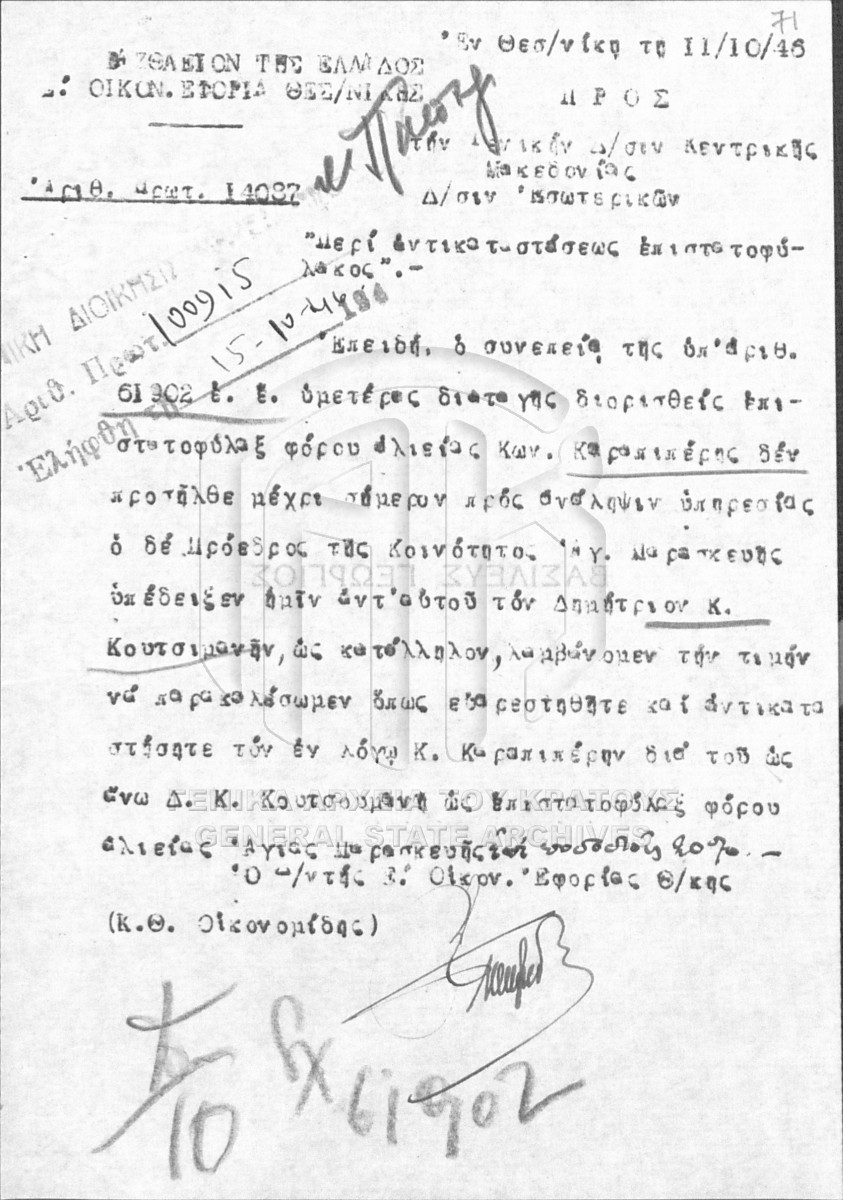 71
Ἐν Θεσ/νίκῃ τῇ 11/10/46
ΒΑΣΙΛΕΙΟΝ ΤΗΣ ΕΛΛΑΔΟΣ
Ε! ΟΙΚΟΝ. ΕΦΟΡΙΑ ΘΕΣ/ΝΙΚΗΣ
ΠΡΟΣ
τήν Γενικήν Δ/σιν Κεντρικῆς
Μακεδονίας
Ἀριθ. πρωτ. 14087
Δ/σιν Ἐσωτερικῶν
"Περί ἀντικαταστάσεως ἐπιστατοφύ-
λακος".-
ΔΙΟΙΚΗΣΙΣ
Ἀριθ. Πρωτ. 100915
Ἐλήφθη τῇ 15-10-
Ἐπειδή, ὁ συνεπείᾳ τῆς ὑπ'ἀριθ.
61902 ἐ. ἔ. ὑμετέρας διαταγῆς διορισθείς ἐπι-
στατοφύλαξ φόρου ἁλιείας Κων. Καραπιπέρης δέν
προσῆλθε μέχρι σήμερον πρός ἀνάληψιν ὑπηρεσίας
ὁ δέ Πρόεδρος τῆς Κοινότητος Ἁγ. Παρασκευῆς
ὑπέδειξεν ἡμῖν ἀντ'αὐτοῦ τόν Δημήτριον Κ.
Κουτσιμανῆν, ὡς κατάλληλον, λαμβάνομεν τήν τιμήν
νά παρακαλέσωμεν ὅπως εὐαρεστηθῆτε καί ἀντικατα
στήσητε τόν ἐν λόγῳ Κ. Καραπιπέρην διά τοῦ ὡς
ἄνω Δ. Κ. Κουτσουμανῆ ὡς ἐπιστατοφύλαξ φόρου
ἁλιείας Ἁγίας Παρασκευῆς
Ὁ Δ/ντής Ε! Οἰκον. Ἐφορίας Θ/κης
(Κ.Θ. Οἰκονομίδης)
ΒΑΣΙΛΕΥΣ ΓΕΩΡΓΙΟΣ
ΓΕΝΙΚΑ ΑΡΧΕΙΑ ΤΟΥ ΚΡΑΤΟΥΣ
GENERAL STATE ARCHIVES
10
61902